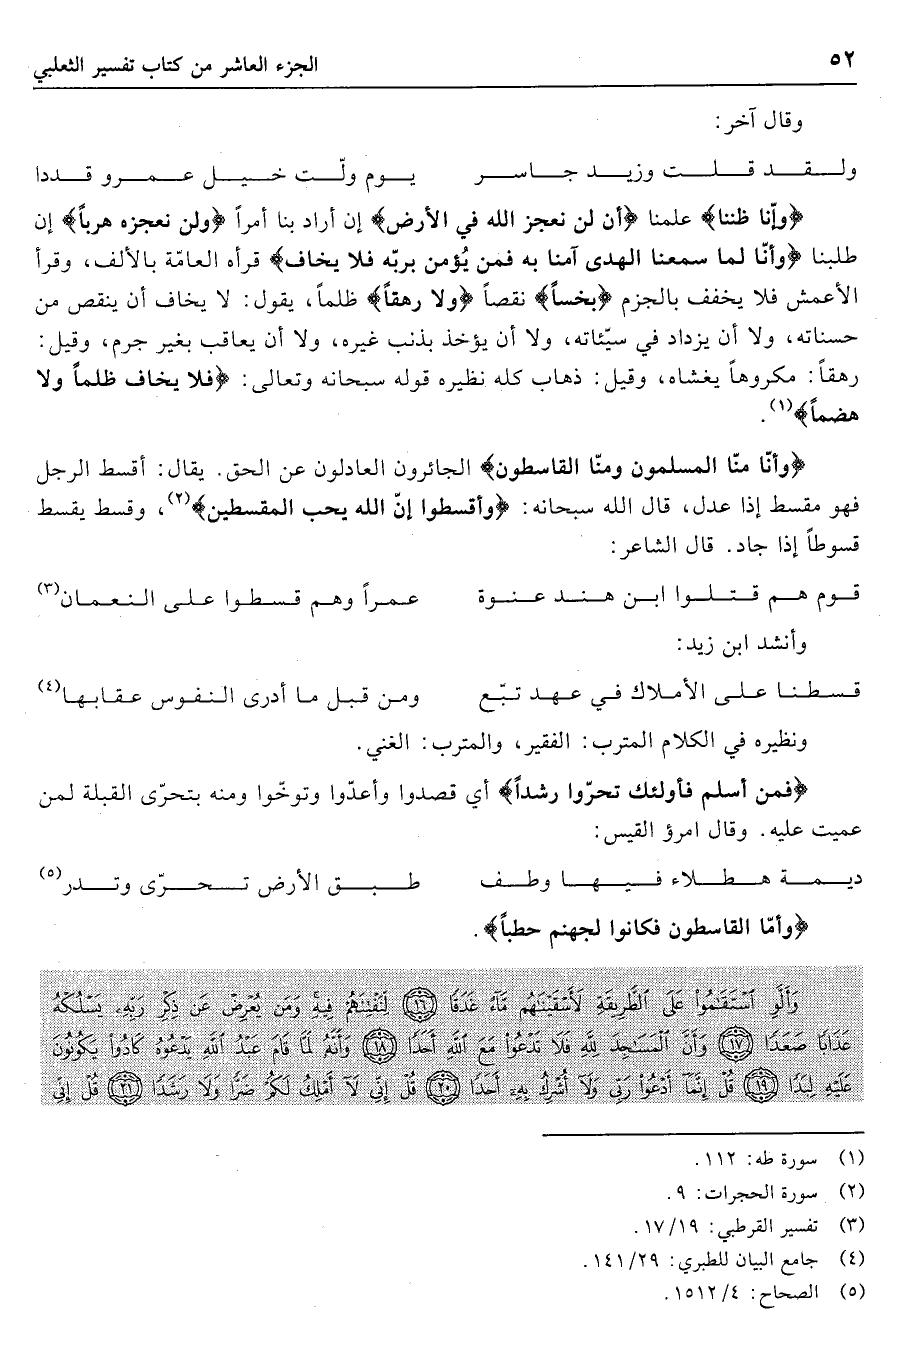 ٥٢
الجزء العاشر من كتاب تفسير الثعلبي
وقال آخر:
ولـقـد قـلـت وزيـد جـاسـر يـوم ولّـت خـيـل عـمـرو قـددا
﴿وإنّا ظننا﴾ علمنا ﴿أن لن نعجز الله في الأرض﴾ إن أراد بنا أمراً ﴿ولن نعجزه هرباً﴾ إن
طلبنا ﴿وأنّا لما سمعنا الهدى آمنا به فمن يُؤمن بربّه فلا يخاف﴾ قرأه العامّة بالألف، وقرأ
الأعمش فلا يخفف بالجزم ﴿بخساً﴾ نقصاً ﴿ولا رهقاً﴾ ظلماً، يقول: لا يخاف أن ينقص من
حسناته، ولا أن يزداد في سيّئاته، ولا أن يؤخذ بذنب غيره، ولا أن يعاقب بغير جرم، وقيل:
رهقاً: مكروهاً يغشاه، وقيل: ذهاب كله نظيره قوله سبحانه وتعالى: ﴿فلا يخاف ظلماً ولا
هضماً﴾(١).
﴿وأنّا منّا المسلمون ومنّا القاسطون﴾ الجائرون العادلون عن الحق. يقال: أقسط الرجل
فهو مقسط إذا عدل، قال الله سبحانه: ﴿وأقسطوا إنّ الله يحب المقسطين﴾(٢)، وقسط يقسط
قسوطاً إذا جاد. قال الشاعر:
قـوم هـم قـتـلـوا ابـن هـنـد عـنـوة عـمـراً وهـم قـسـطـوا عـلـى الـنـعـمـان(٣)
وأنشد ابن زيد:
قـسـطـنـا عـلـى الأمـلاك فـي عـهـد تبّـع ومـن قـبـل مـا أدرى الـنـفـوس عـقـابـهـا(٤)
ونظيره في الكلام المترب: الفقير، والمترب: الغني.
﴿فمن أسلم فأولئك تحرّوا رشداً﴾ أي قصدوا وأعدّوا وتوخّوا ومنه بتحرّى القبلة لمن
عميت عليه. وقال امرؤ القيس:
ديـمـة هـطـلاء فـيـهـا وطـف طـبـق الأرض تـحـرّى وتـدر(٥)
﴿وأمّا القاسطون فكانوا لجهنم حطباً﴾.
وَأَلَّوِ اسْتَقَامُوا عَلَى الطَّرِيقَةِ لَأَسْقَيْنَاهُم مَّاءً غَدَقًا ﴿١٦﴾ لِّنَفْتِنَهُمْ فِيهِ وَمَن يُعْرِضْ عَن ذِكْرِ رَبِّهِ يَسْلُكْهُ
عَذَابًا صَعَدًا ﴿١٧﴾ وَأَنَّ الْمَسَاجِدَ لِلَّهِ فَلَا تَدْعُوا مَعَ اللَّهِ أَحَدًا ﴿١٨﴾ وَأَنَّهُ لَمَّا قَامَ عَبْدُ اللَّهِ يَدْعُوهُ كَادُوا يَكُونُونَ
عَلَيْهِ لِبَدًا ﴿١٩﴾ قُلْ إِنَّمَا أَدْعُوا رَبِّي وَلَا أُشْرِكُ بِهِ أَحَدًا ﴿٢٠﴾ قُلْ إِنِّي لَا أَمْلِكُ لَكُمْ ضَرًّا وَلَا رَشَدًا ﴿٢١﴾ قُلْ إِنِّي
(١) سورة طه: ١١٢.
(٢) سورة الحجرات: ٩.
(٣) تفسير القرطبي: ١٧/١٩.
(٤) جامع البيان للطبري: ١٤١/٢٩.
(٥) الصحاح: ١٥١٢/٤.